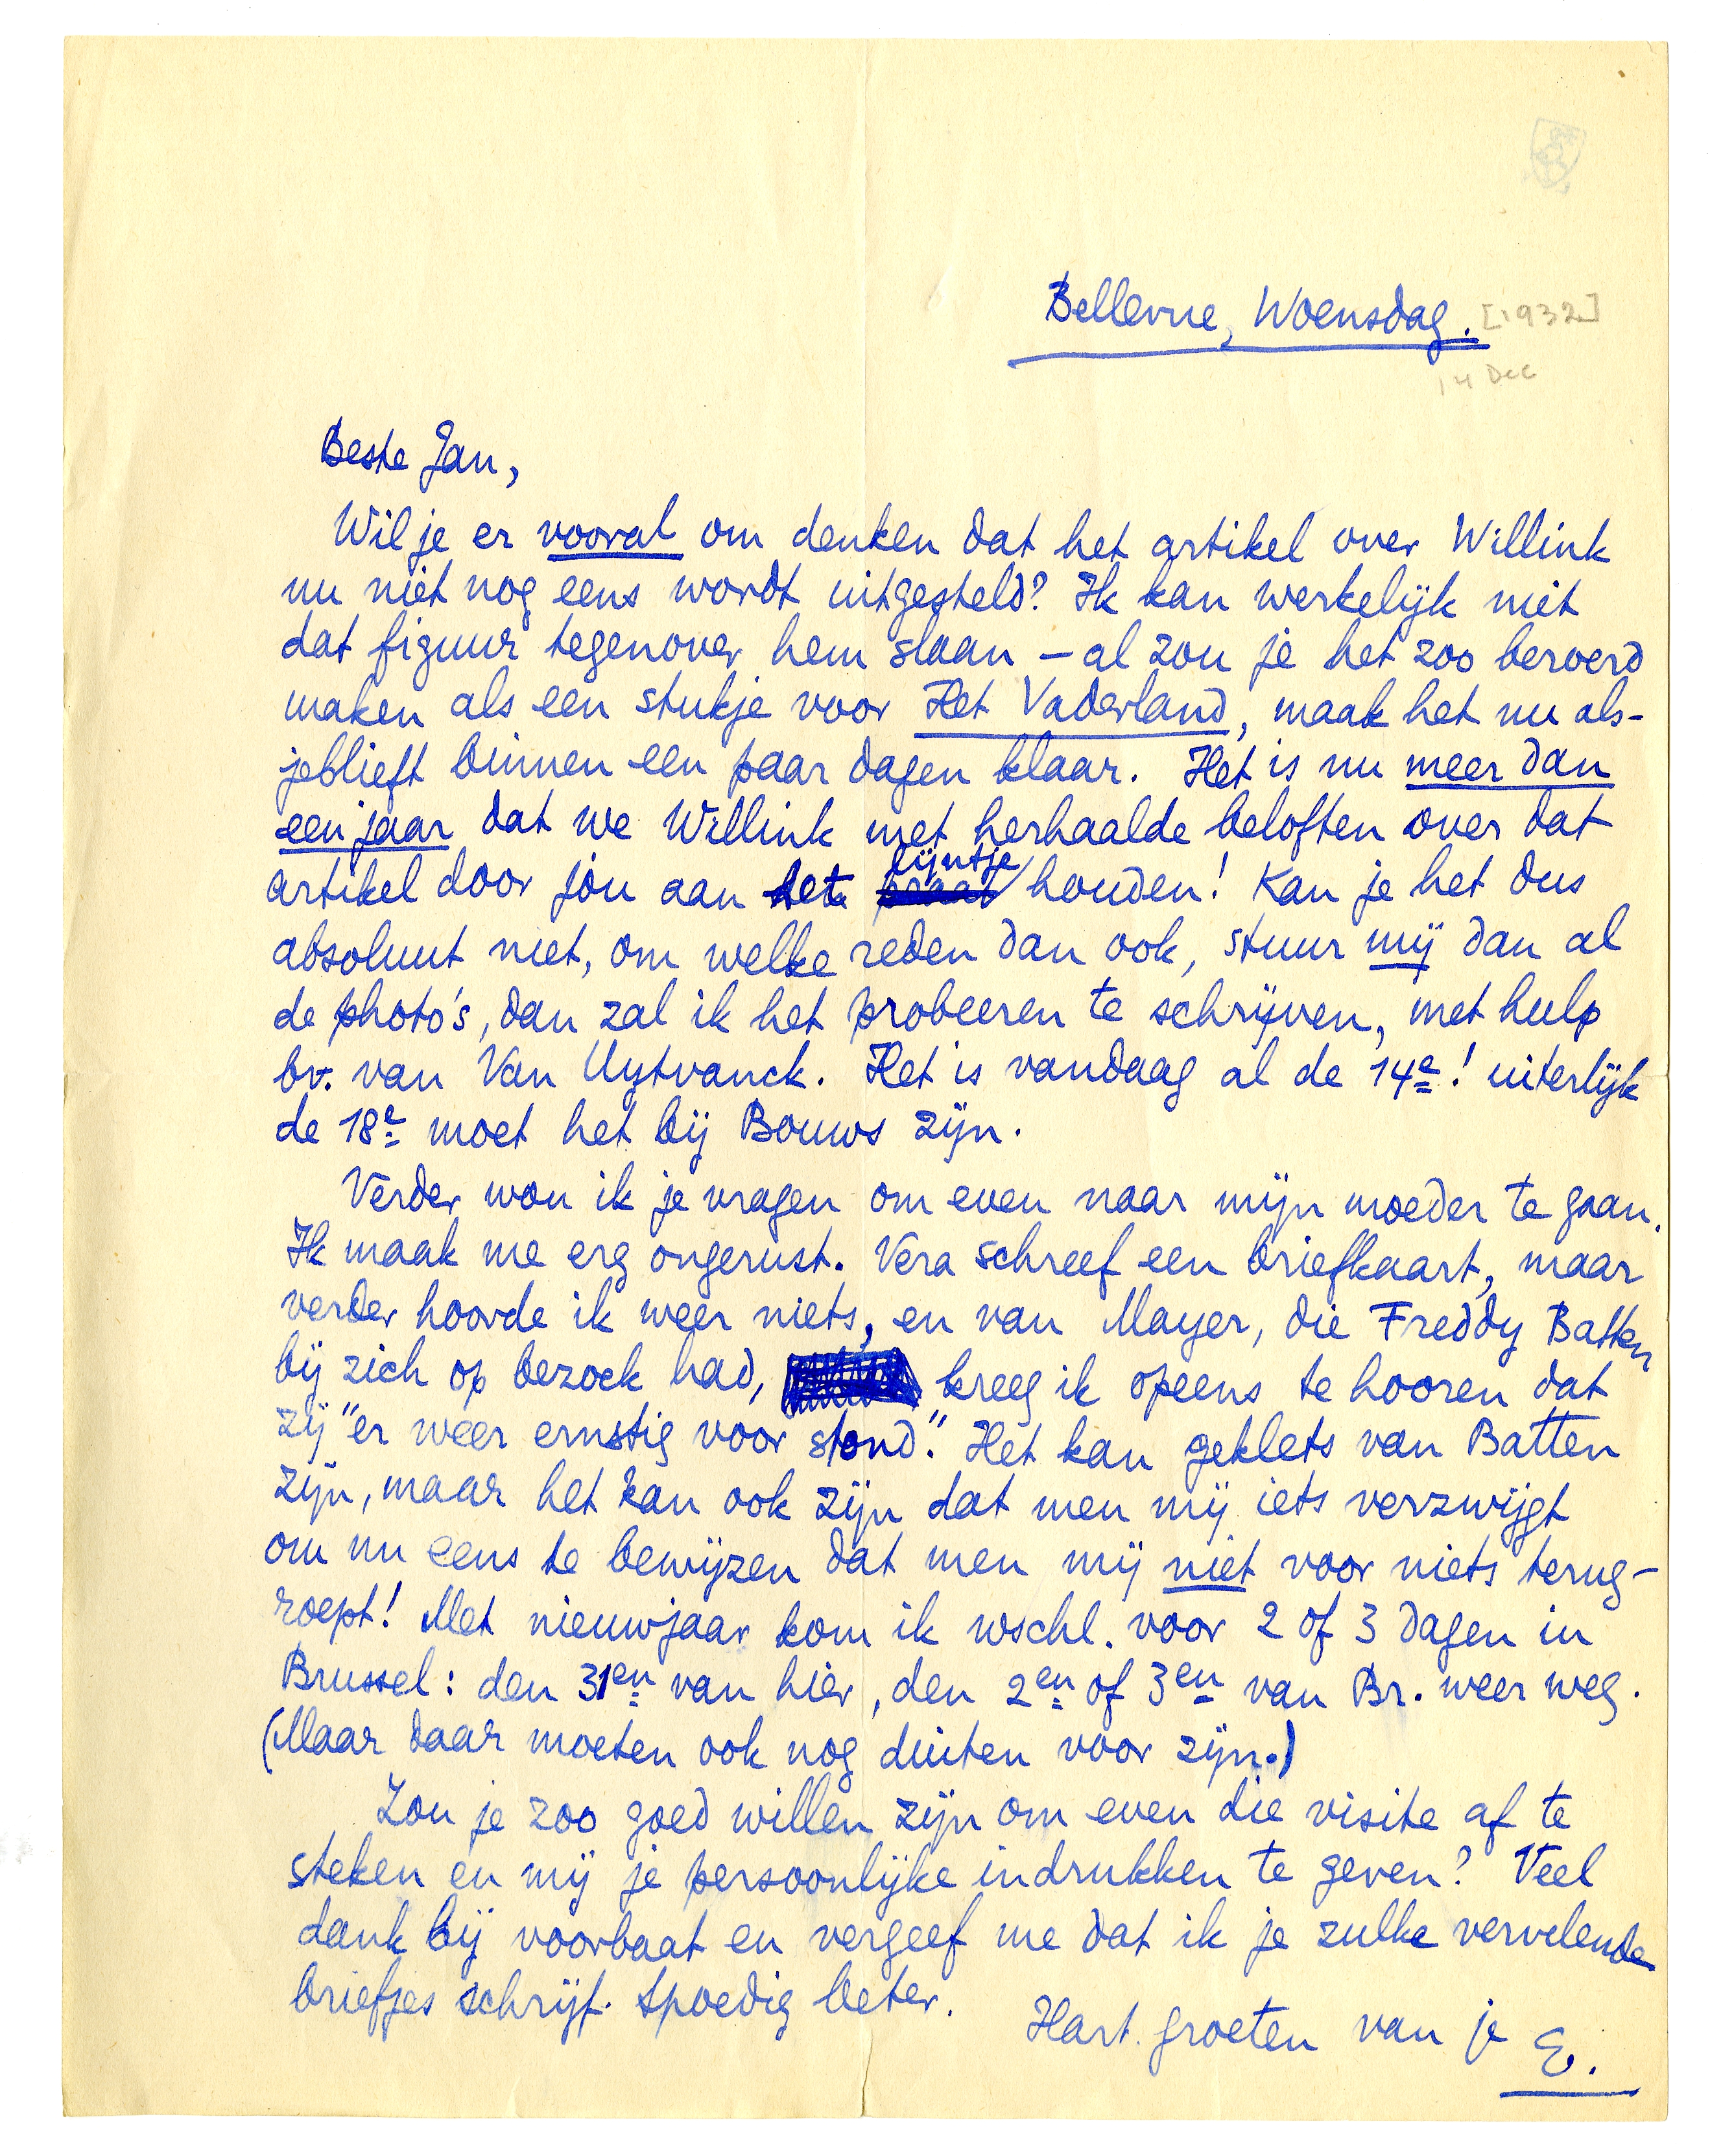 Bellevue, Woensdag. [1932]
14 Dec
Beste Jan,
Wil je er vooral om denken dat het artikel over Willink
nu niet nog eens wordt uitgesteld? Ik kan werkelijk niet
dat figuur tegenover hem slaan – al zou je het zoo beroerd
maken als een stukje voor Het Vaderland, maak het nu als-
jeblieft binnen een paar dagen klaar. Het is nu meer dan
een jaar dat we Willink met herhaalde beloften over dat
artikel door jòu aan het lijntje houden! Kan je het dus
absoluut niet, om welke reden dan ook, stuur mij dan al
de photo's, dan zal ik het probeeren te schrijven, met hulp
bv. van Van Uytvanck. Het is vandaag al de 14e! uiterlijk
de 18e moet het bij Bouws zijn.
Verder wou ik je vragen om even naar mijn moeder te gaan.
Ik maak me erg ongerust. Vera schreef een briefkaart, maar
verder hoorde ik weer niets, en van Mayer, die Freddy Batten
bij zich op bezoek had, kreeg ik opeens te hooren dat
zij "er weer ernstig voor stond." Het kan geklets van Batten
zijn, maar het kan ook zijn dat men mij iets verzwijgt
om nu eens te bewijzen dat men mij niet voor niets terug-
roept! Met nieuwjaar kom ik wschl. voor 2 of 3 dagen in
Brussel: den 31en van hier, den 2en of 3en van Br. weer weg.
(Maar daar moeten ook nog duiten voor zijn.)
Zou je zoo goed willen zijn om even die visite af te
steken en mij je persoonlijke indrukken te geven? Veel
dank bij voorbaat en vergeef me dat ik je zulke vervelende
briefjes schrijf. Spoedig beter.
Hart. groeten van je E.